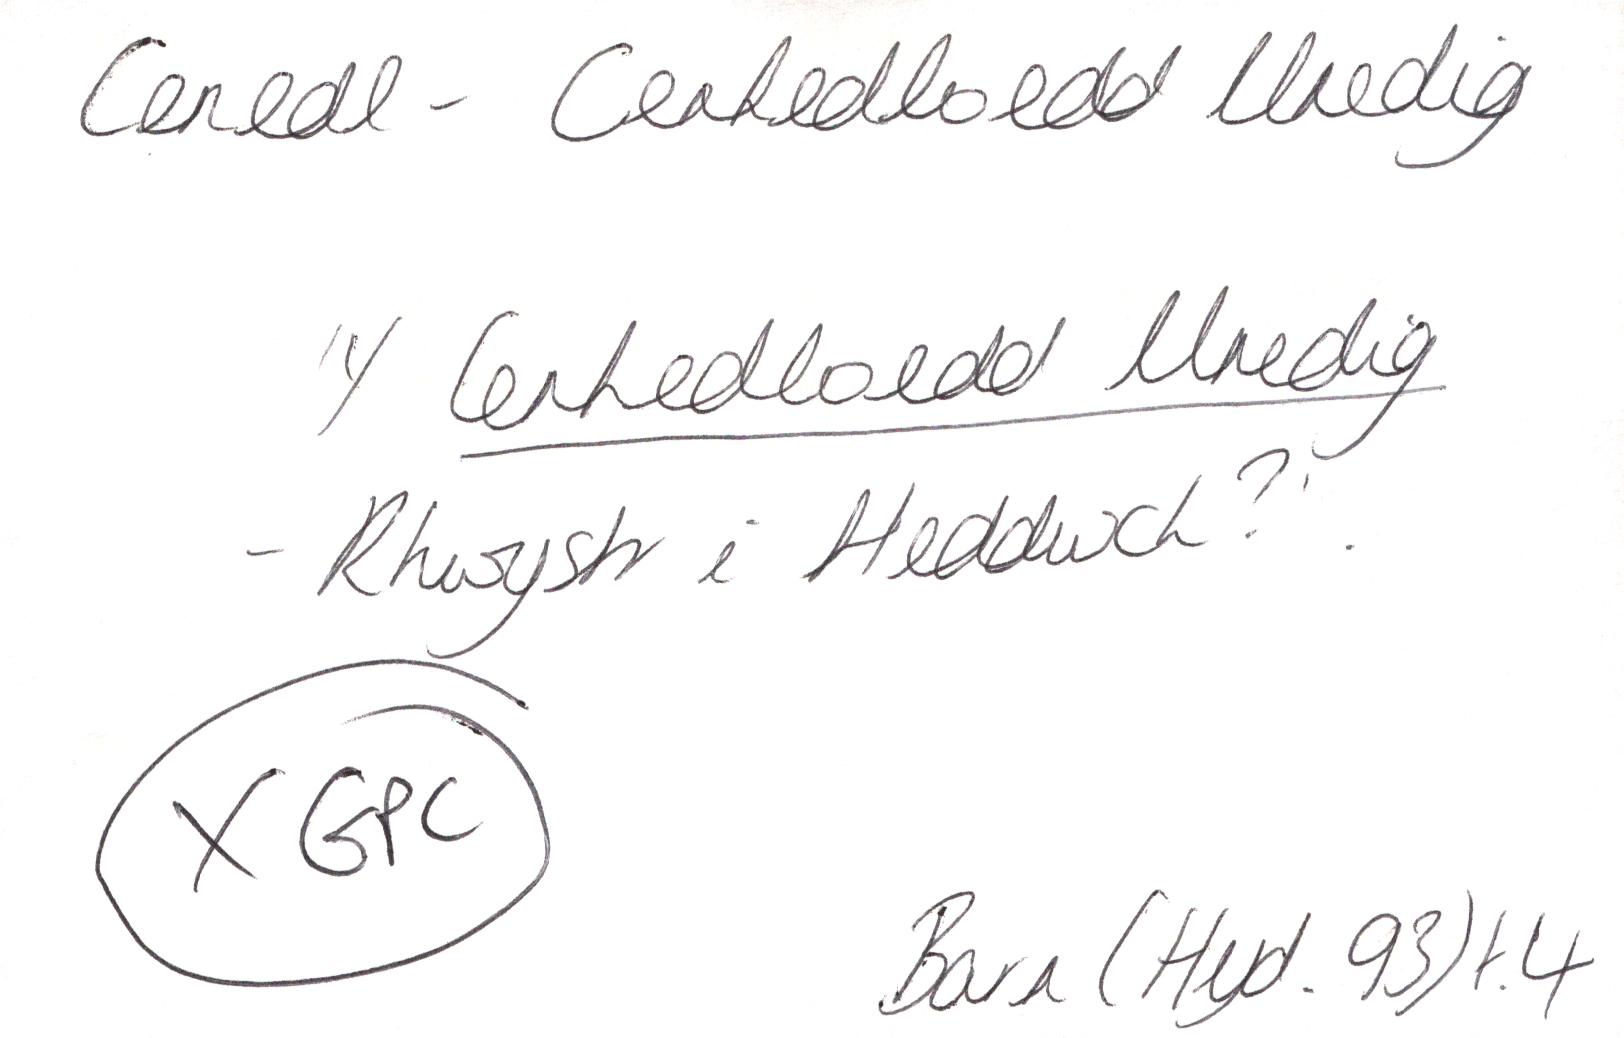 Cenedl - Cenhedloedd Unedig
'Y Cenhedloedd Unedig
- Rhwystr i Heddwch?'.
X GPC
Barn (Hyd. 93) t.4